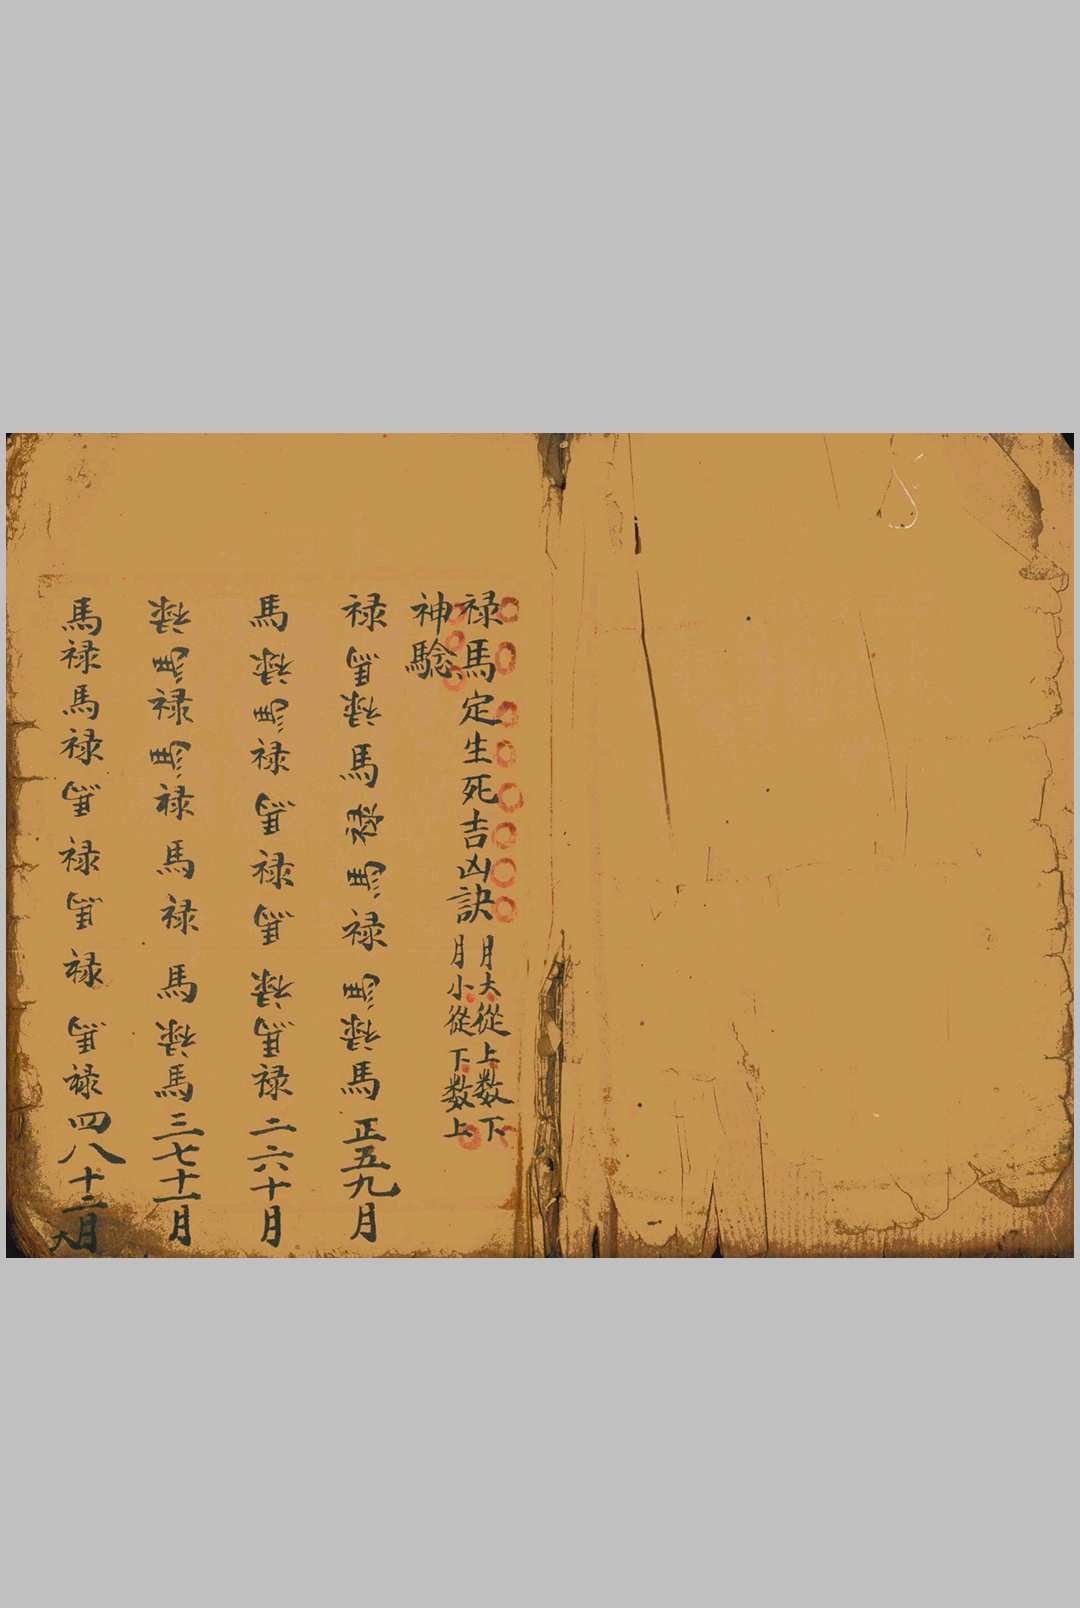 禄馬定生死吉凶訣 月大從上数下
月小從下数上
神騐
禄馬禄馬禄馬禄馬禄馬正五九月
馬禄馬禄馬禄馬禄馬禄二六十月
禄馬禄馬禄馬禄馬禄馬三七十一月
馬禄馬禄馬禄馬禄馬禄四八十二月